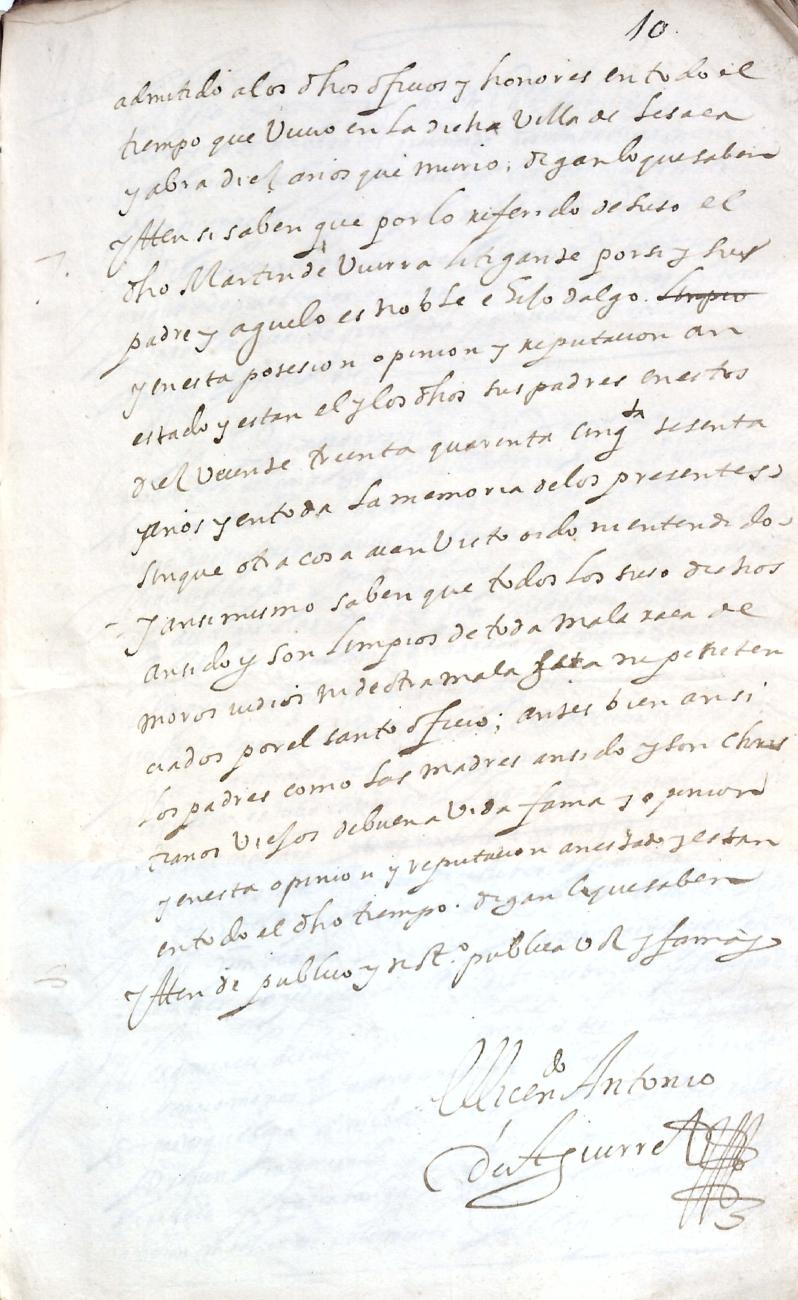 10
admitido a los dhos oficios y honores en todo el
tiempo que Viuio en La dicha Villa de Lesaca
y abra diez años que murio; digan lo que saben
Ytten si saben que por lo referido de suso el
dho Martin de Viurra litigante por si y sus
padre y aguelo es noble e hijo dalgo. Limpio
y en esta posesion opinion y reputacion an
estado y estan el y los dhos sus padres en estos
diez veente treenta quarenta cinqta sesenta
años y en toda La memoria de los presentes
sin que otra cosa aian Visto oido ni entendido
Y ansi mismo saben que todos los suso dichos
an sido y son Limpios de toda mala raca de
moros iudios ni de otra mala seta ni peniten
ciados por el santo oficio; antes bien ansi
Los padres como Las madres an sido y son chris
tianos Viejos de buena Vida fama y opinion
y en esta opinion y reputacion an estado y estan
en todo el dho tiempo. digan lo que saben
Ytten de publico y not.o publica voz y fama
El licendo Antonio
de Aguirre